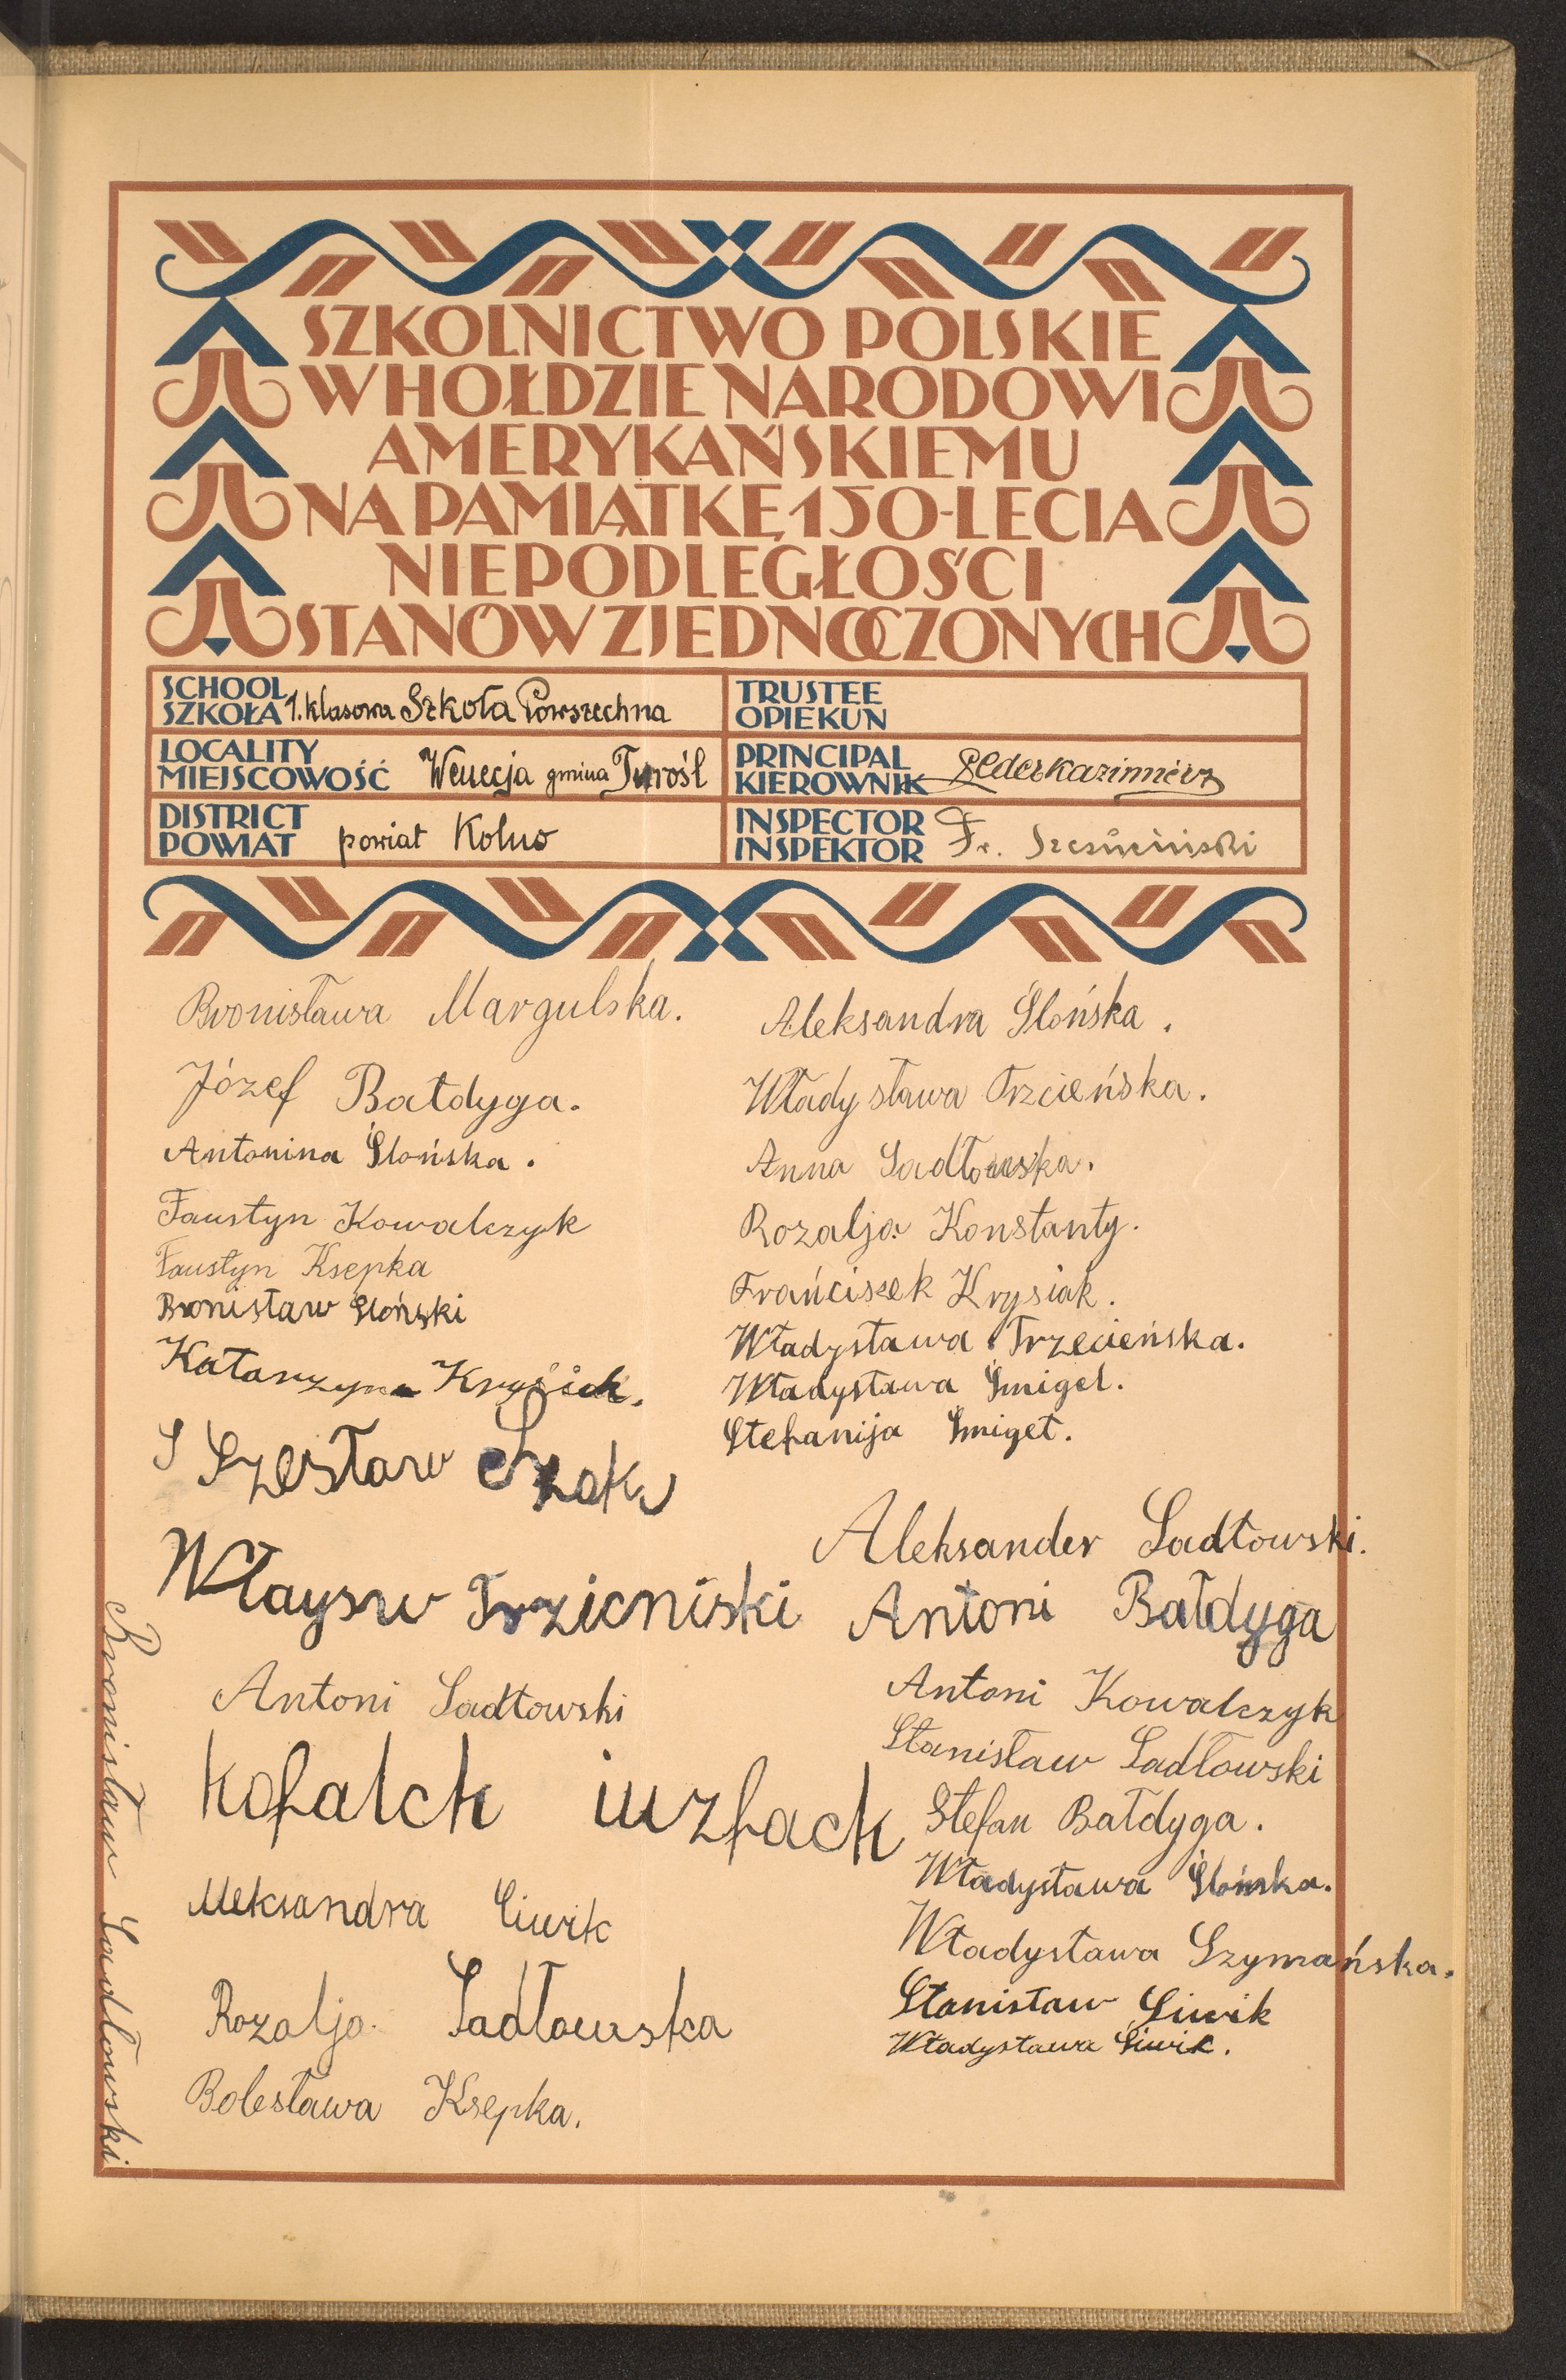 SZKOLNICTWO POLSKIE
W HOŁDZIE NARODOWI
AMERYKAŃSKIEMU
NA PAMIĄTKĘ 150-LECIA
NIEPODLEGŁOŚCI
STANÓW ZJEDNOCZONYCH
SCHOOL
SZKOŁA 1. klasowa Szkoła Powszechna
LOCALITY
MIEJSCOWOŚĆ Wenecja gmina Turośl
DISTRICT
POWIAT powiat Kolno
TRUSTEE
OPIEKUN
PRINCIPAL
KIEROWNIK Kazimierz
INSPECTOR
INSPEKTOR Fr.
Bronisława Margulska.
Józef Bałdyga.
Antonina Słońska.
Faustyn Kowalczyk
Faustyn Ksepka
Bronisław Słoński
Katarzyna Krysiak.
S Szesław
Właysw Trzicniski
Antoni Sadłowski
Kofalck iuzfack
Aleksandra Siwik
Rozalja Sadłowska
Bolesława Ksepka.
Aleksandra Słońska.
Władysława Trzcieńska.
Anna Sadłowska.
Rozalja Konstanty.
Frańciszek Krysiak.
Władysława Trzecieńska.
Władysława Śmigel.
Stefanija Śmigeł.
Aleksander Sadłowski.
Antoni Bałdyga
Antoni Kowalczyk
Stanisław Sadłowski
Stefan Bałdyga.
Władysława Słońska.
Władysława Szymańska.
Stanisław Siwik
Władysława Siwik.
Bronisław Sadłowski